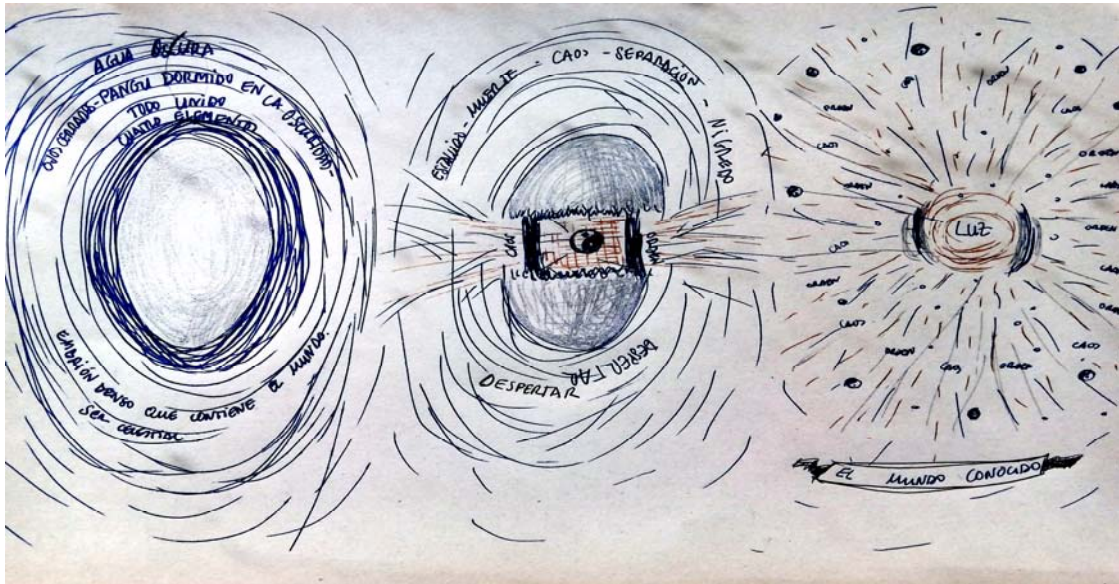 AGUA OSCURA
OJOS CERRADOS-PANGU DORMIDO EN LA OSCURIDAD-
TODO UNIDO
CUATRO ELEMENTO
EMBRIÓN DENSO QUE CONTIENE EL MUNDO.
SER CELESTIAL
MUERTE - CAOS - SEPARACIÓN - NIGREDO
CAOS
ORDEN
DESPERTAR
DESPERTAR
ORDEN
CAOS
ORDEN
ORDEN
CAOS
CAOS
ORDEN
ORDEN
CAOS
ORDEN
LUZ
ORDEN
CAOS
CAOS
ORDEN
ORDEN
CAOS
ORDEN
CAOS
ORDEN
CAOS
ORDEN
EL MUNDO CONOCIDO